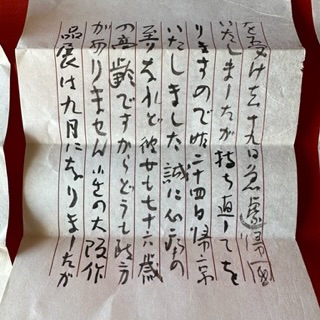 を受け去十九日急遽帰国
いたしましたが持ち直してを
りますので昨二十四日帰京
いたしました 誠に心痛の
至りなれど彼女も七十六歳
の高齢ですからどうも致方
がありません 小生の大阪作
品展は九月になりましたが